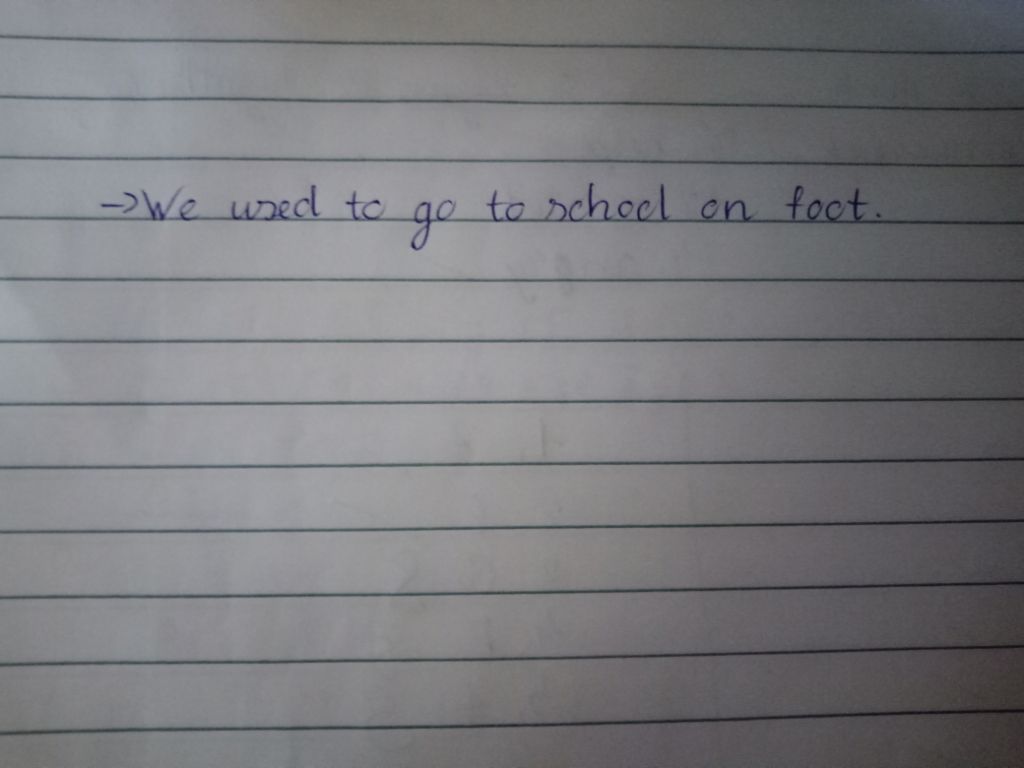 →We used to go to school on foot.